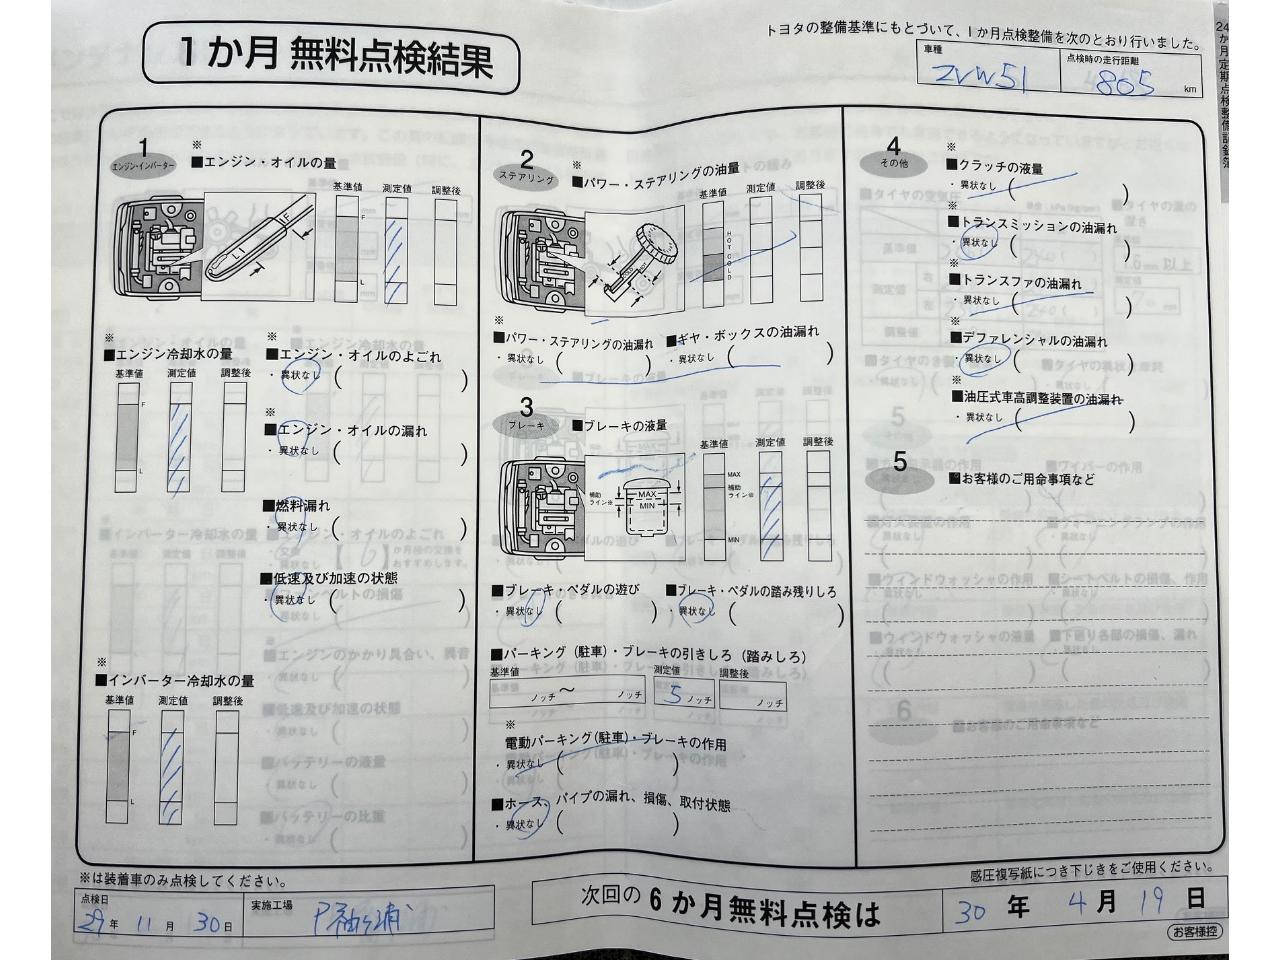 1か月 無料点検結果
トヨタの整備基準にもとづいて、1か月点検整備を次のとおり行いました。
車種 ZVW51
点検時の走行距離 865 km
24か月定期点検整備記録簿
1 エンジン・インバーター
※
■エンジン・オイルの量
基準値 測定値 調整後
F
L
※
■エンジン冷却水の量
基準値 測定値 調整後
F
L
※
■エンジン・オイルのよごれ
・異状なし ( )
※
■エンジン・オイルの漏れ
・異状なし ( )
■燃料漏れ
・異状なし ( )
■低速及び加速の状態
・異状なし ( )
※
■インバーター冷却水の量
基準値 測定値 調整後
F
L
2 ステアリング
※
■パワー・ステアリングの油量
基準値 測定値 調整後
HOT
COLD
※
■パワー・ステアリングの油漏れ
・異状なし ( )
■ギヤ・ボックスの油漏れ
・異状なし ( )
3 ブレーキ
■ブレーキの液量
基準値 測定値 調整後
補助ライン※
MAX
MIN
MAX
補助ライン※
MIN
■ブレーキ・ペダルの遊び
・異状なし ( )
■ブレーキ・ペダルの踏み残りしろ
・異状なし ( )
■パーキング(駐車)・ブレーキの引きしろ(踏みしろ)
基準値 ノッチ〜 ノッチ
測定値 5 ノッチ
調整後 ノッチ
※
電動パーキング(駐車)・ブレーキの作用
・異状なし ( )
■ホース、パイプの漏れ、損傷、取付状態
・異状なし ( )
4 その他
※
■クラッチの液量
・異状なし ( )
※
■トランスミッションの油漏れ
・異状なし ( )
※
■トランスファの油漏れ
・異状なし ( )
※
■デファレンシャルの油漏れ
・異状なし ( )
※
■油圧式車高調整装置の油漏れ
・異状なし ( )
5
■お客様のご用命事項など
※は装着車のみ点検してください。
感圧複写紙につき下じきをご使用ください。
点検日 29年 11月 30日
実施工場 P袖ヶ浦
次回の6か月無料点検は 30年 4月 19日
お客様控